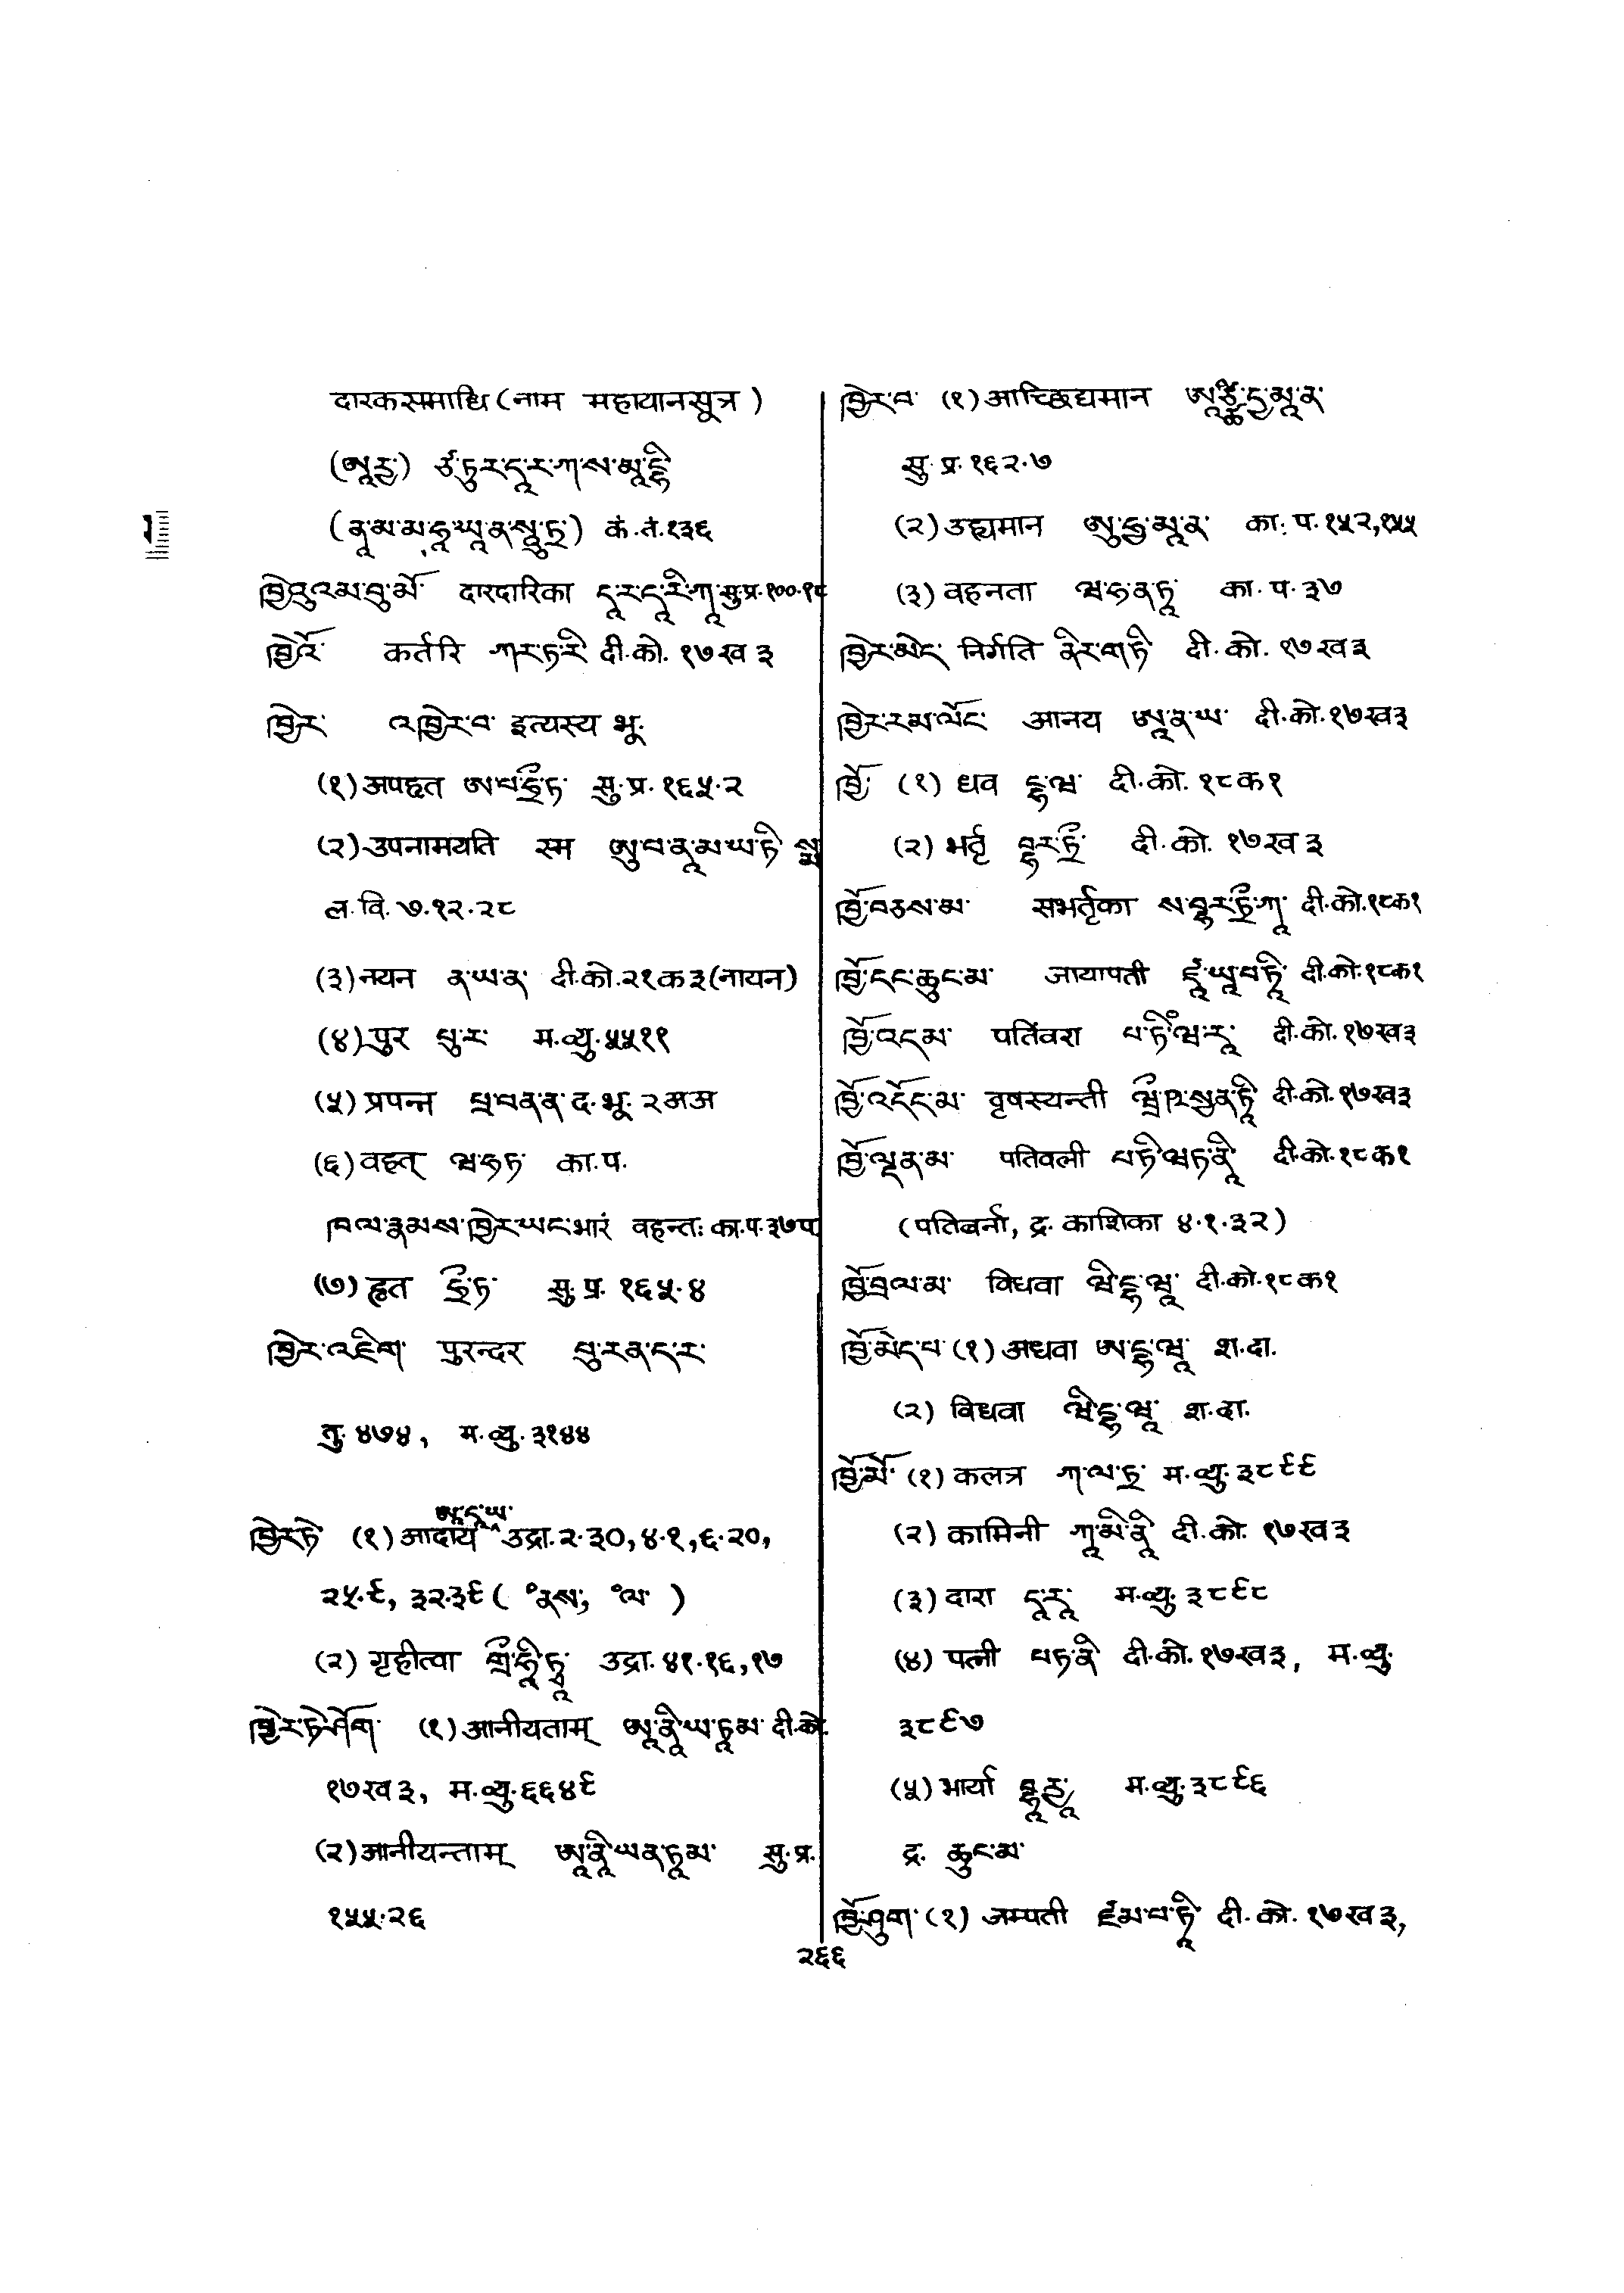 दारकसमाधि (नाम महायानसूत्र)
(ཨཱརྱ) ཙཏུར་དཱ་ར་ཀ་ས་མཱ་དྷི
(ནཱ་མ་མ་ཧཱ་ཡཱ་ན་སཱུ་ཏྲ) कं.तं.१३६
ཁྱེའུ་འམ་བུ་མོ་ दारदारिका དཱ་ར་དཱ་རི་ཀཱ་ सु.प्र.१००.१८
ཁྱེར་ कर्तरि ཀར་ཏ་རི दी.को. १७ख ३
ཁྱེར་ འཁྱེར་བ་ इत्यस्य भू.
(१) अपहृत ཨ་པ་ཧྲྀ་ཏ་ सु.प्र. १६५.२
(२) उपनामयति स्म ཨུ་པ་ནཱ་མ་ཡ་ཏི་སྨ
ल.वि. ७.१२.२८
(३) नयन ན་ཡ་ན་ दी.को.२१क३ (नायन)
(४) पुर པུ་ར་ म.व्यु.५५११
(५) प्रपन्न པྲ་པནྣ་ द.भू. २अअ
(६) वहत् ཝ་ཧ་ཏ་ का.प.
ཁལ་རྣམས་ཁྱེར་ཡང་ भारं वहन्तः का.प.३७५
(७) हृत ཧྲྀ་ཏ་ सु.प्र. १६५.४
ཁྱེར་འཇིག་ पुरन्दर པུ་རན་ད་ར་
तु.४७४, म.व्यु.३१४४
ཨཱ་དཱ་ཡ་
ཁྱེར་ཏེ (१) आदाय उद्रा.२.३०, ४.१, ६.२०,
२५.९, ३२.३९ ( °ནས, °ལ་ )
(२) गृहीत्वा གྲྀ་ཧཱི་ཏྭཱ उद्रा. ४१.१६, १७
ཁྱེར་ཏེ་ཤོག་ (१) आनीयताम् ཨཱ་ནཱི་ཡ་ཏཱམ་ दी.को.
१७ख ३, म.व्यु.६६४९
(२) आनीयन्ताम् ཨཱ་ནཱི་ཡན་ཏཱམ་ सु.प्र.
१५५.२६
ཁྱེར་བ་ (१) आच्छिद्यमान ཨཱཙྪི་དྱ་མཱ་ན་
सु.प्र.१६२.७
(२) उह्यमान ཨུ་ཧྱ་མཱ་ན་ का.प.१५२,१५५
(३) वहनता ཝ་ཧ་ན་ཏཱ का.प.३७
ཁྱེར་མེད་ निर्गति ནིར་ག་ཏི दी.को. १७ख३
ཁྱེར་རམ་ལོང་ आनय ཨཱ་ན་ཡ་ दी.को.१७ख३
ཁྱོ་ (१) धव དྷ་ཝ་ दी.को. १८क१
(२) भर्तृ བྷར་ཏྲྀ दी.को. १७ख ३
ཁྱོ་བཅས་མ་ सभर्तृका ས་བྷར་ཏྲྀ་ཀཱ दी.को.१८क१
ཁྱོ་དང་ཆུང་མ་ जायापती ཛཱ་ཡཱ་པ་ཏཱི दी.को.१८क१
ཁྱོ་འདམ་ पतिंवरा པ་ཏིཾ་ཝ་རཱ दी.को.१७ख३
ཁྱོ་འདོད་མ་ वृषस्यन्ती ཝྲྀ་ཥ་སྱན་ཏཱི दी.को.१७ख३
ཁྱོ་ལྡན་མ་ पतिवत्नी པ་ཏི་ཝཏ་ནཱི दी.को.१८क१
(पतिवत्नी, द्र. काशिका ४.१.३२)
ཁྱོ་བྲལ་མ་ विधवा ཝི་དྷ་ཝཱ दी.को.१८क१
ཁྱོ་མེད་པ་ (१) अधवा ཨ་དྷ་ཝཱ श.दा.
(२) विधवा ཝི་དྷ་ཝཱ श.दा.
ཁྱོ་མོ་ (१) कलत्र ཀ་ལ་ཏྲ་ म.व्यु.३८९९
(२) कामिनी ཀཱ་མི་ནཱི दी.को. १७ख३
(३) दारा དཱ་རཱ म.व्यु. ३८९८
(४) पत्नी པཏ་ནི दी.को.१७ख३, म.व्यु.
३८९७
(५) भार्या བྷཱརྱཱ म.व्यु.३८९६
द्र. ཆུང་མ་
ཁྱོ་ཤུག་ (१) जम्पती ཛམ་པ་ཏཱི दी.को.१७ख३,
२६६